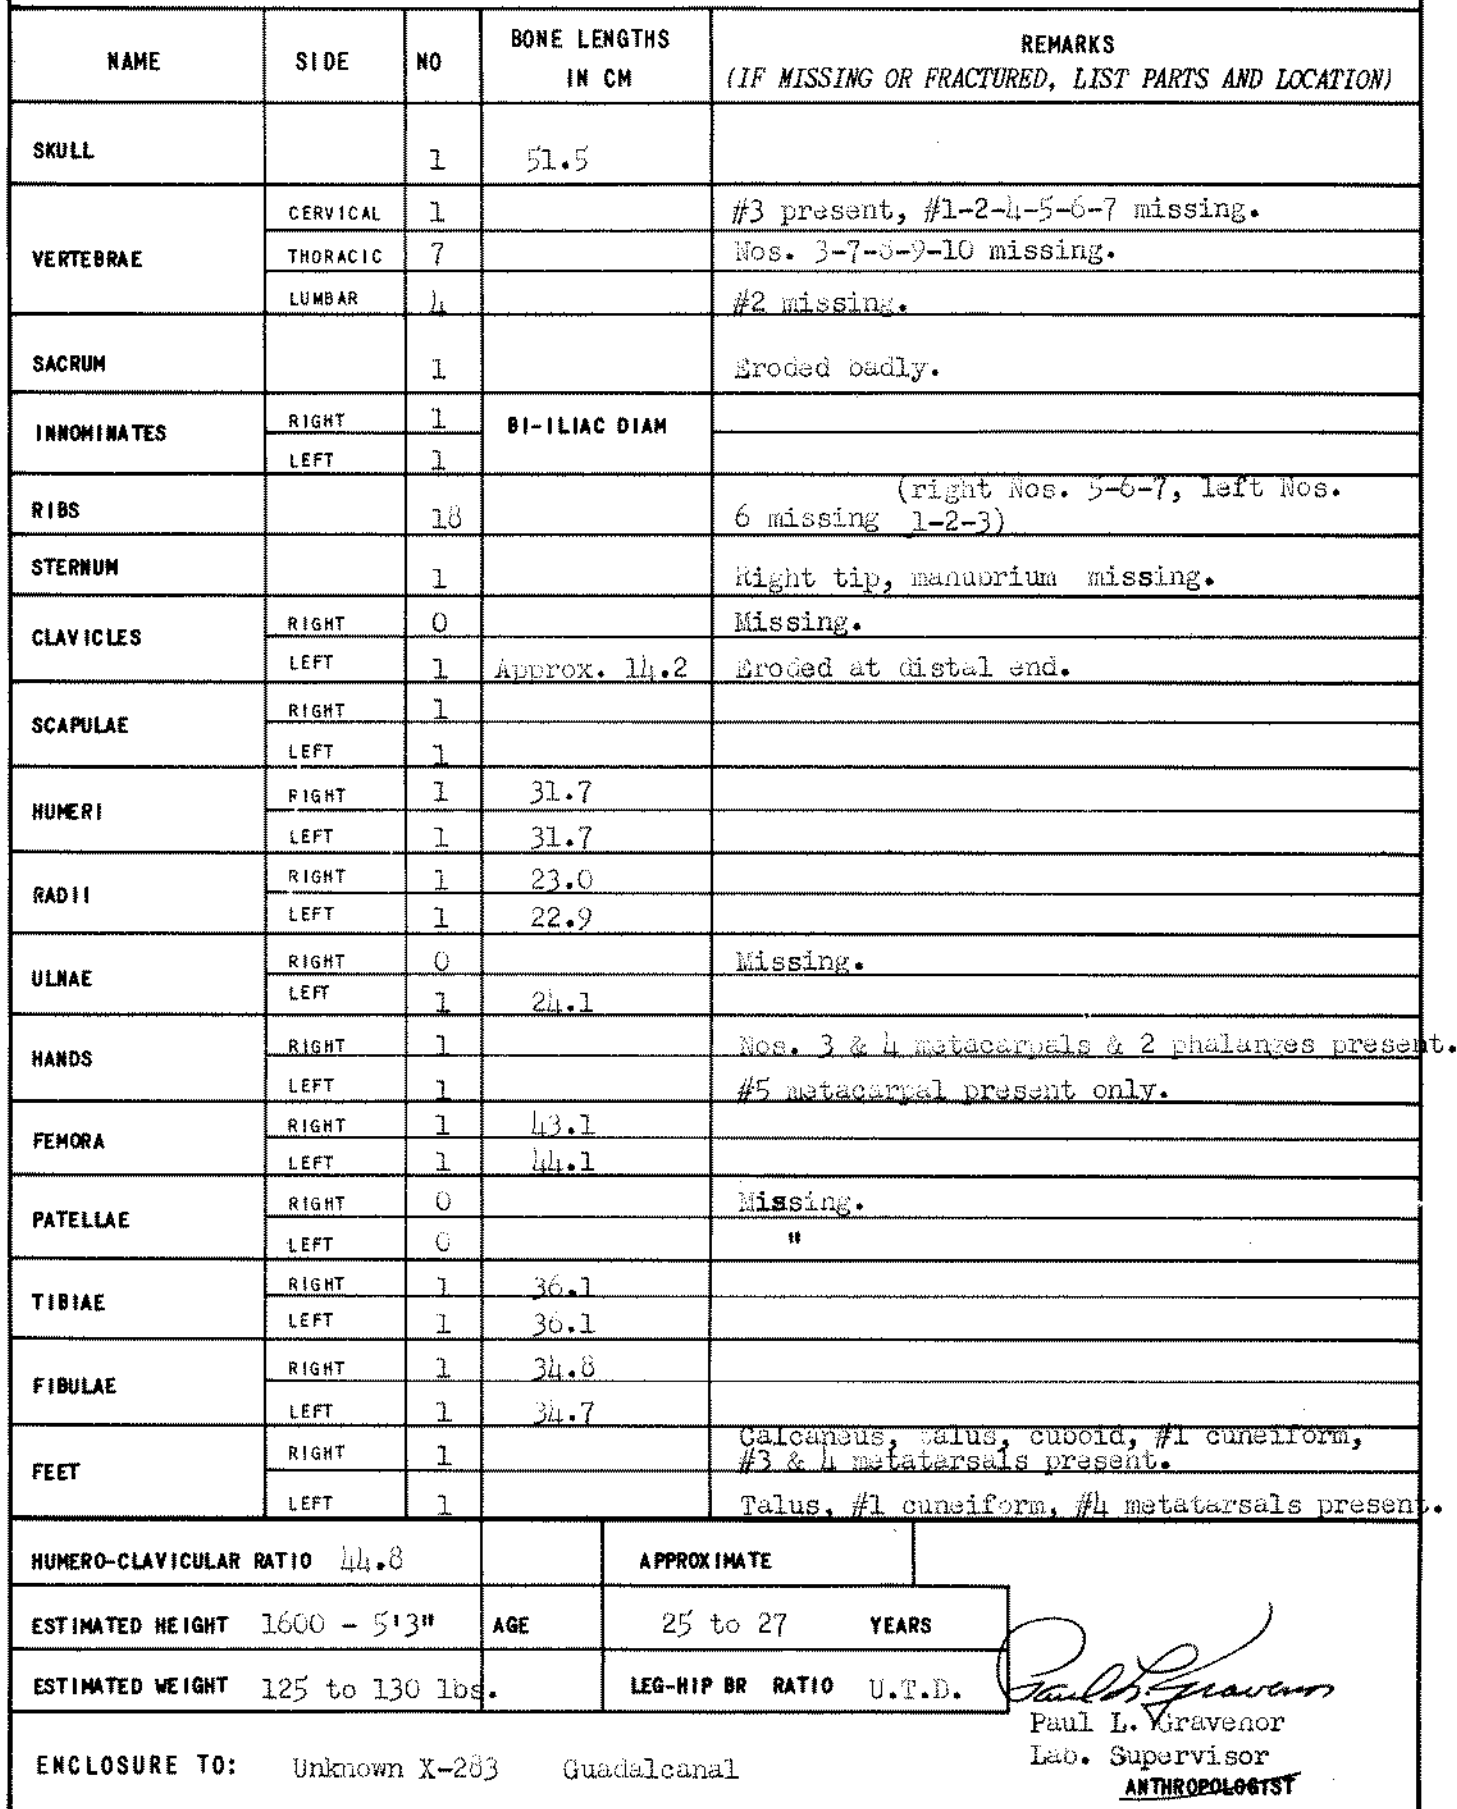 NAME SIDE NO BONE LENGTHS IN CM REMARKS
(IF MISSING OR FRACTURED, LIST PARTS AND LOCATION)
SKULL 1 51.5
VERTEBRAE CERVICAL 1 #3 present, #1-2-4-5-6-7 missing.
THORACIC 7 Nos. 3-7-8-9-10 missing.
LUMBAR 4 #2 missing.
SACRUM 1 Eroded badly.
INNOMINATES RIGHT 1 BI-ILIAC DIAM
LEFT 1
(right Nos. 5-6-7, left Nos.
RIBS 18 6 missing 1-2-3)
STERNUM 1 Right tip, manubrium missing.
CLAVICLES RIGHT 0 Missing.
LEFT 1 Approx. 14.2 Eroded at distal end.
SCAPULAE RIGHT 1
LEFT 1
HUMERI RIGHT 1 31.7
LEFT 1 31.7
RADII RIGHT 1 23.0
LEFT 1 22.9
ULNAE RIGHT 0 Missing.
LEFT 1 24.1
HANDS RIGHT 1 Nos. 3 & 4 metacarpals & 2 phalanges present.
LEFT 1 #5 metacarpal present only.
FEMORA RIGHT 1 43.1
LEFT 1 44.1
PATELLAE RIGHT 0 Missing.
LEFT 0 "
TIBIAE RIGHT 1 36.1
LEFT 1 36.1
FIBULAE RIGHT 1 34.8
LEFT 1 34.7
Calcaneus, talus, cuboid, #1 cuneiform,
FEET RIGHT 1 #3 & 4 metatarsals present.
LEFT 1 Talus, #1 cuneiform, #4 metatarsals present.
HUMERO-CLAVICULAR RATIO 44.8 APPROXIMATE
ESTIMATED HEIGHT 1600 - 5'3" AGE 25 to 27 YEARS
ESTIMATED WEIGHT 125 to 130 lbs. LEG-HIP BR RATIO U.T.D.
Paul L. Gravenor
Paul L. Gravenor
Lab. Supervisor
ANTHROPOLOGIST
ENCLOSURE TO: Unknown X-283 Guadalcanal